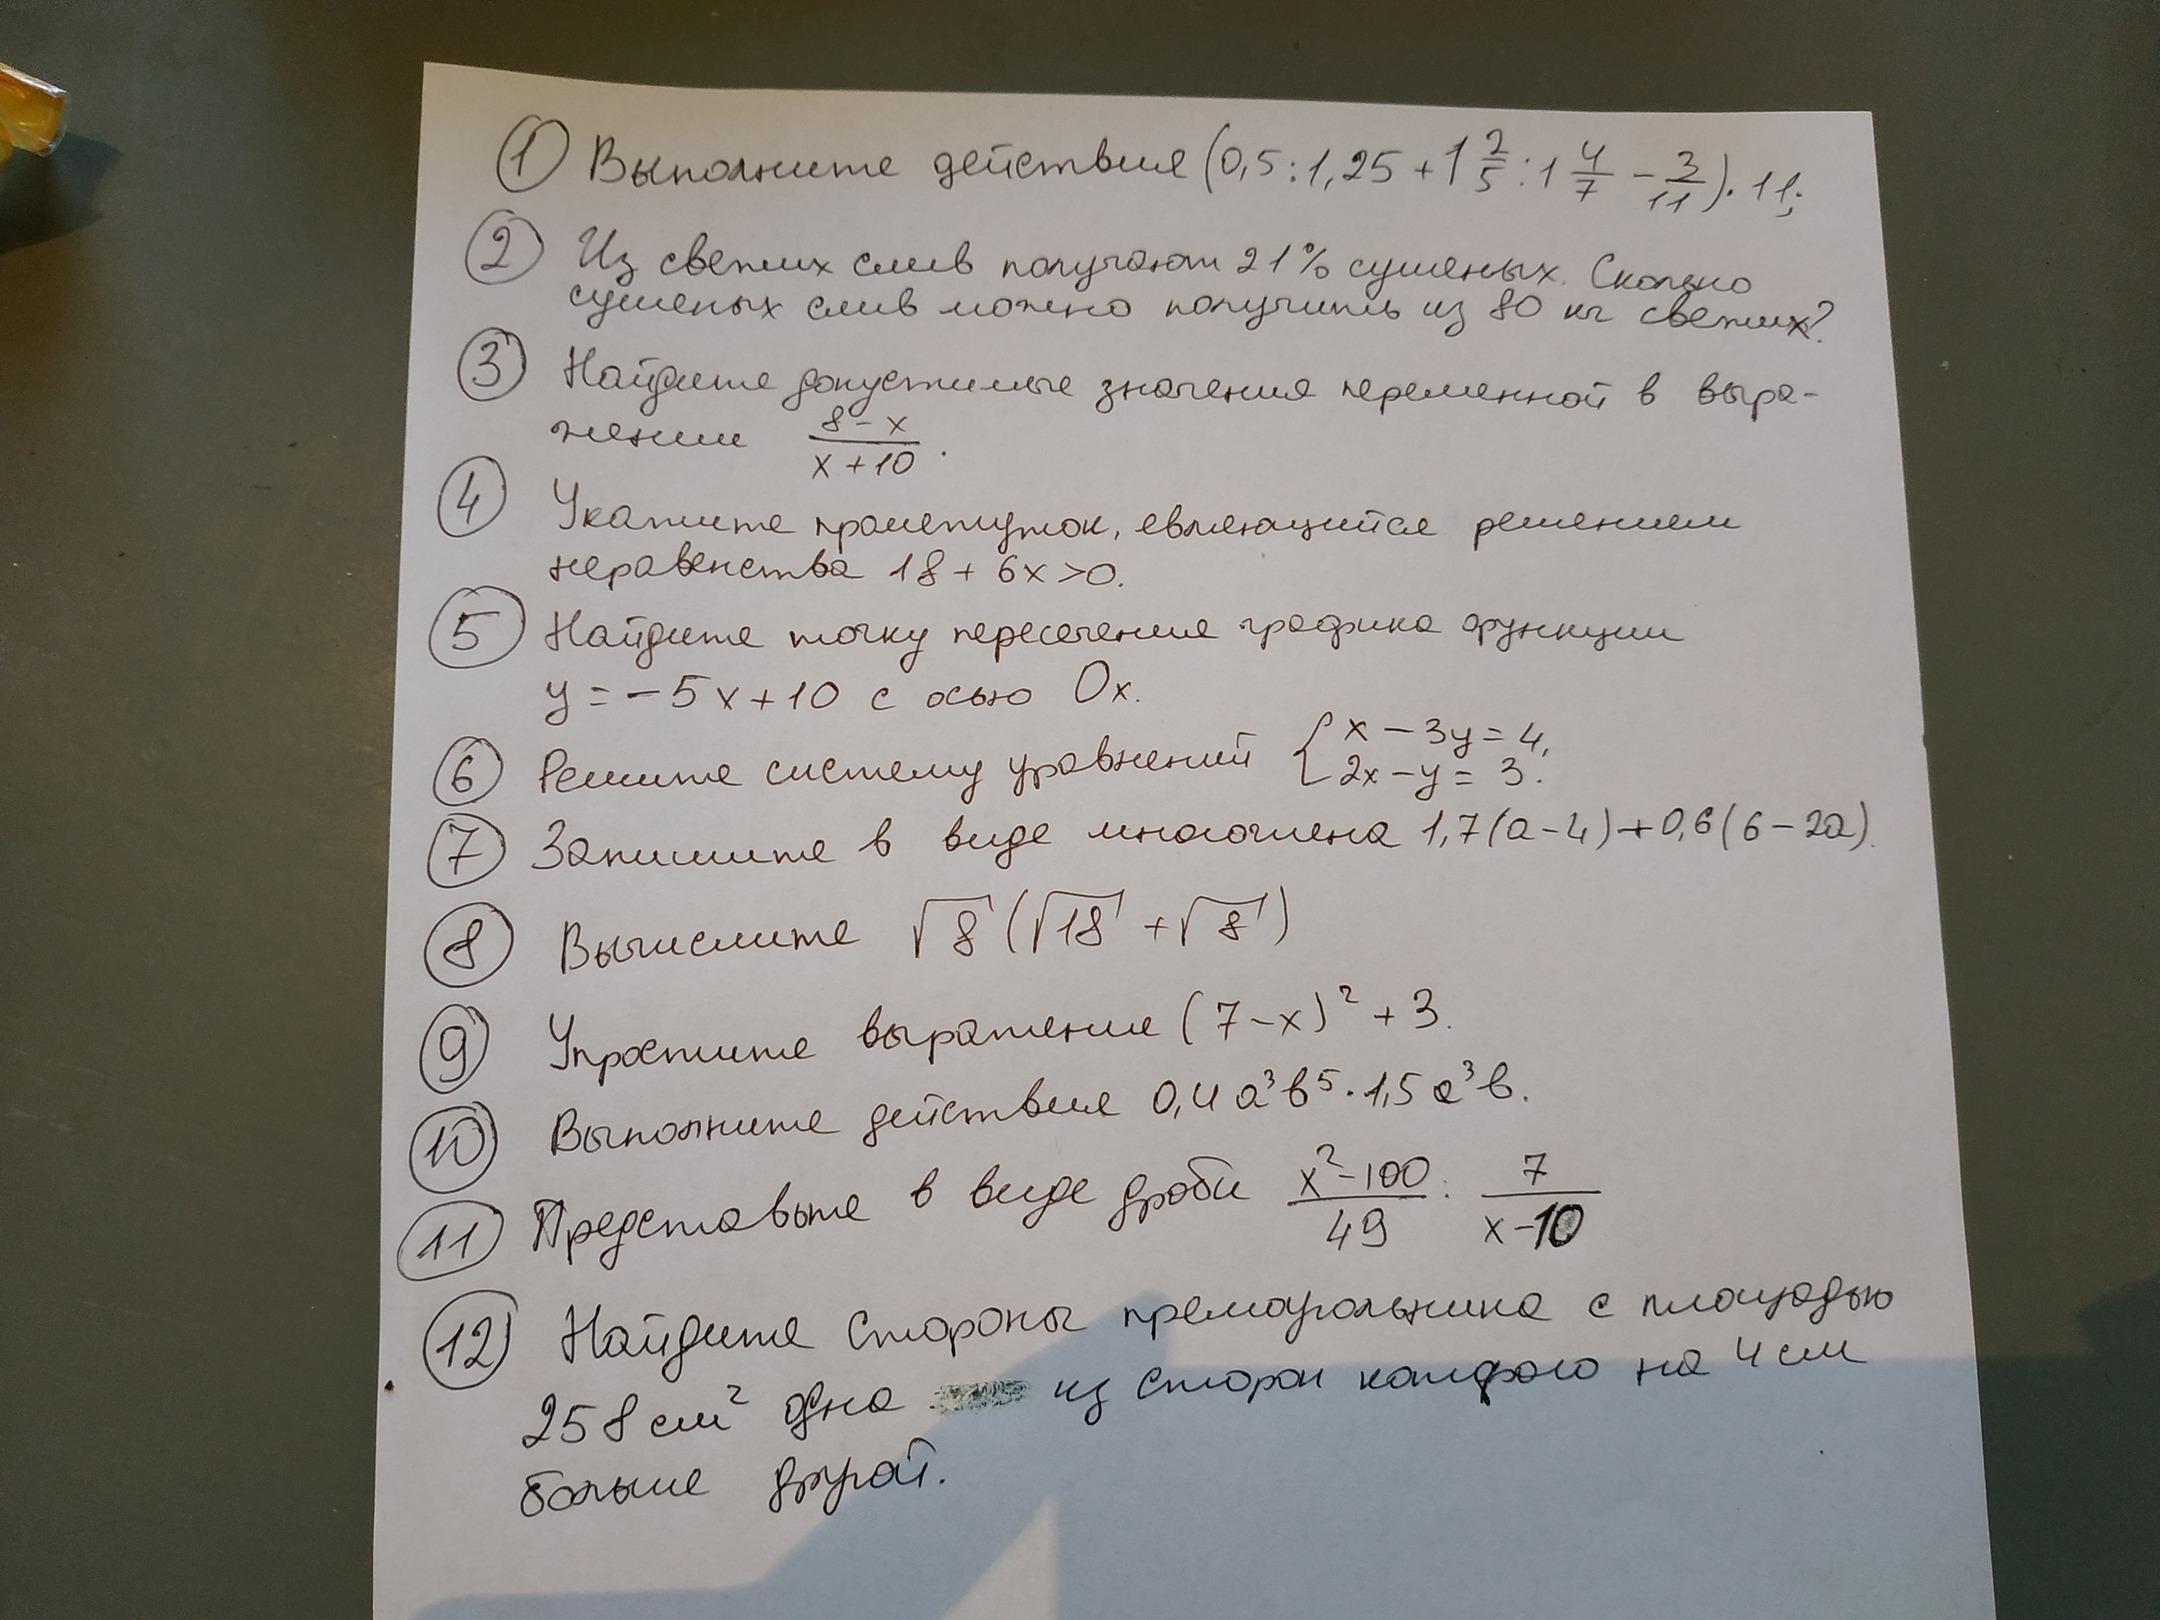 1 Выполните действия (0,5 : 1,25 + 1 2/5 : 1 4/7 − 3/11) · 11;
2 Из свежих слив получают 21% сушеных. Сколько
сушеных слив можно получить из 80 кг свежих?
3 Найдите допустимые значения переменной в выра-
жении (8 − x)/(x + 10).
4 Укажите промежуток, являющийся решением
неравенства 18 + 6x > 0.
5 Найдите точку пересечения графика функции
y = −5x + 10 с осью Ox.
6 Решите систему уравнений { x − 3y = 4,
2x − y = 3.
7 Запишите в виде многочлена 1,7(a − 4) + 0,6(6 − 2a).
8 Вычислите √8 (√18 + √8)
9 Упростите выражение (7 − x)² + 3.
10 Выполните действия 0,4a³b⁵ · 1,5a³b.
11 Представьте в виде дроби (x² − 100)/49 : 7/(x − 10)
12 Найдите стороны прямоугольника с площадью
258 см² одна из сторон которого на 4 см
больше другой.